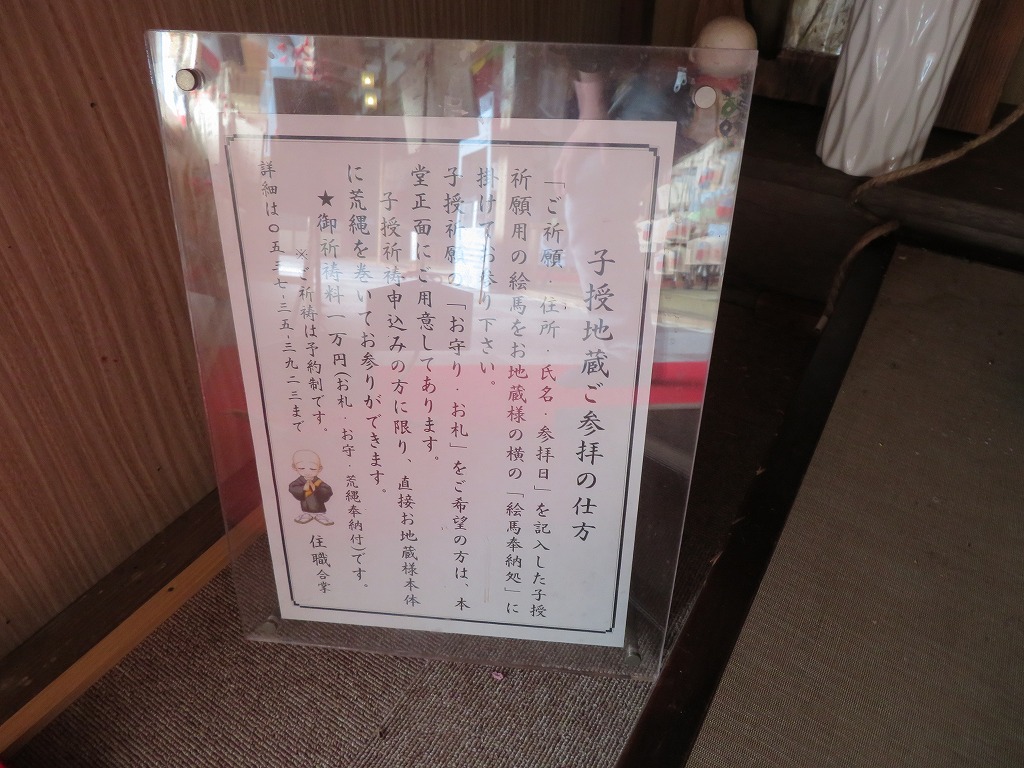 子授地蔵ご参拝の仕方
「ご祈願・住所・氏名・参拝日」を記入した子授
祈願用の絵馬をお地蔵様の横の「絵馬奉納処」に
掛けてお参り下さい。
子授祈願の「お守り・お札」をご希望の方は、本
堂正面にご用意してあります。
子授祈祷申込みの方に限り、直接お地蔵様本体
に荒縄を巻いてお参りができます。
★御祈祷料 一万円(お札・お守・荒縄奉納付)です。
※ご祈祷は予約制です。
詳細は〇五三七-三五-三九二三まで
住職合掌